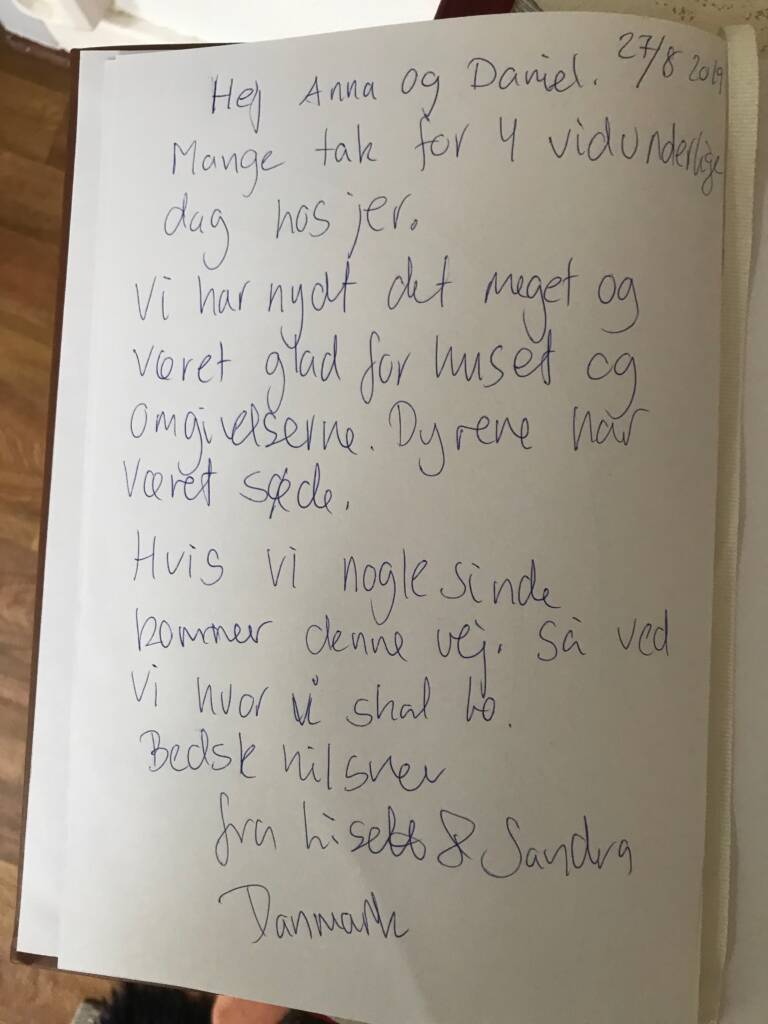 27/8 2019
Hej Anna og Daniel.
Mange tak for 4 vidunderlige
dag hos jer.
Vi har nydt det meget og
været glad for huset og
omgivelserne. Dyrene har
været søde.
Hvis vi nogle sinde
kommer denne vej. så ved
vi hvor vi skal bo.
Bedste hilsner
fra & Sandra
Danmark